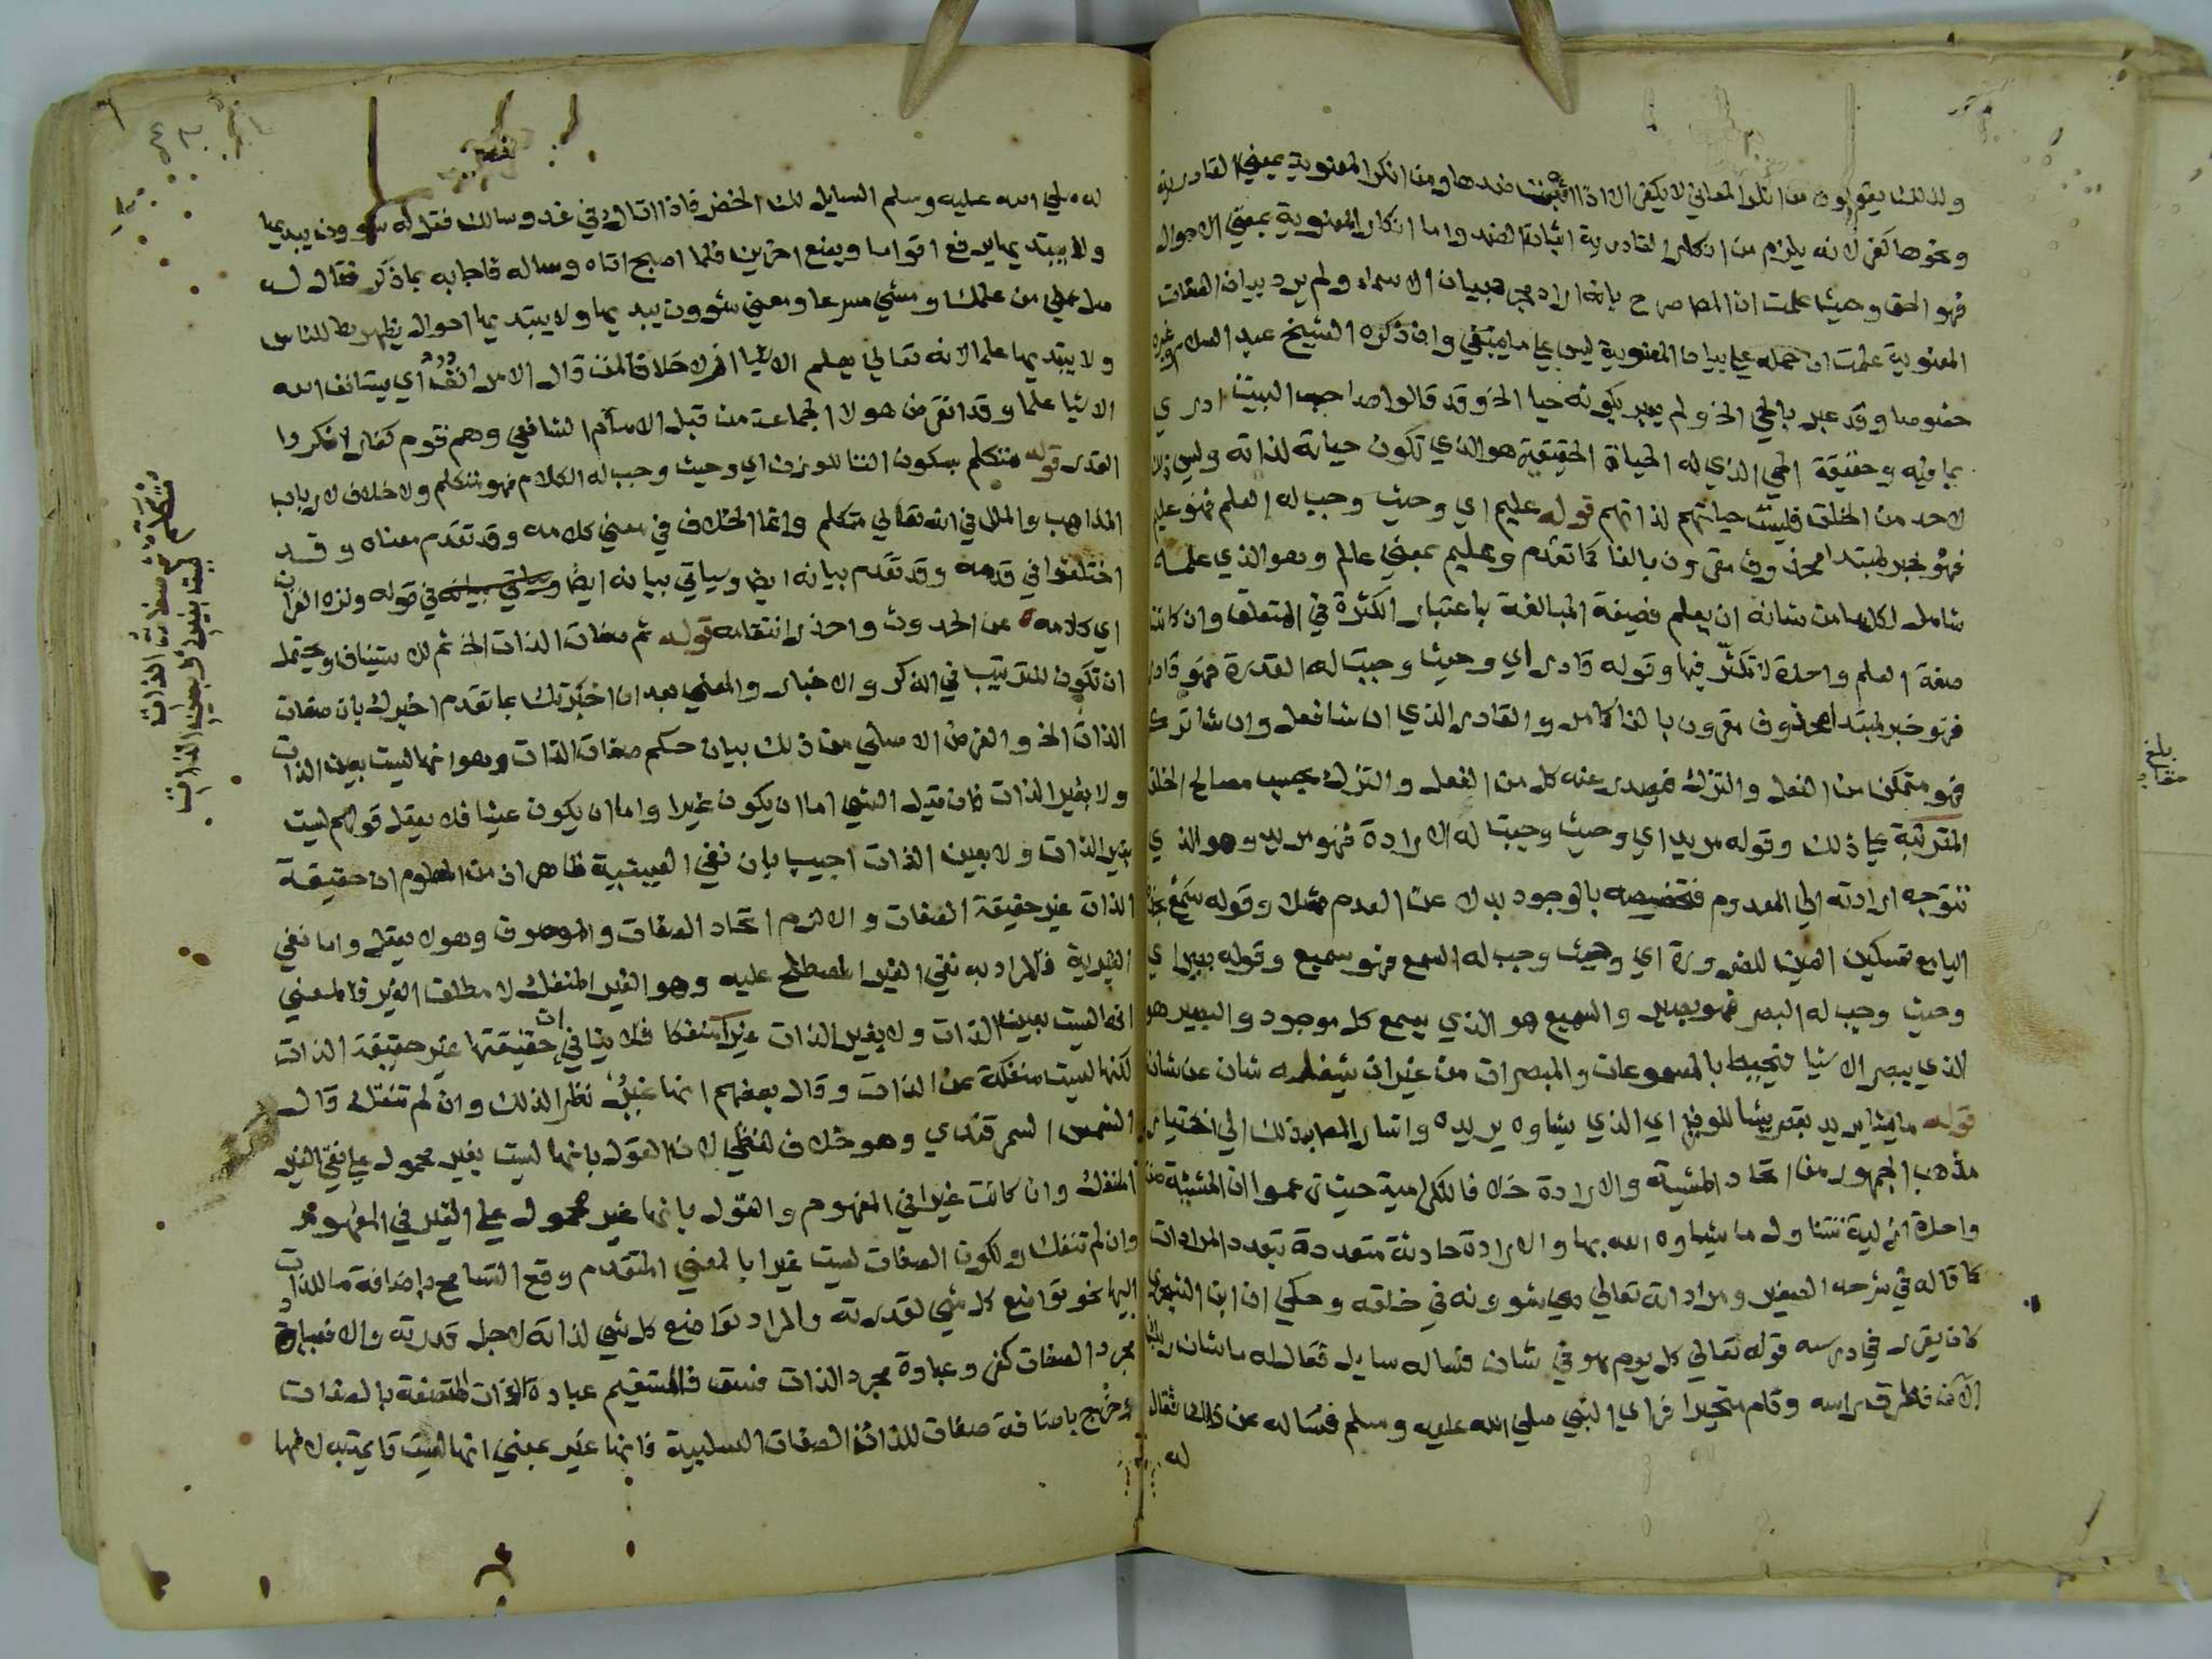 ولذلك يقولون من انكر المعاني لا يكفر الا اذا اثبت ضدها ومن انكر المعنوية بمعني القادرية
ونحوها كفر لانه يلزم من انكار القادرية اثبات الضد واما انكار المعنوية بمعني الاحوال
فهو الحق وحيث علمت ان المص صرح بانه اراد بيان الاسماء ولم يرد بيان الصفات
المعنوية علمت ان حمله علي بيان المعنوية ليس علي ما ينبغي وان ذكره الشيخ عبد السلام وغيره
خصوصا وقد عبر بالحي الخ ولم يعبر بكونه حيا الخ وقد قالوا صاحب البيت ادري
بما فيه وحقيقة الحي الذي له الحياة الحقيقية هو الذي تكون حياته لذاته وليس ذلك
لاحد من الخلق فليست حياتهم لذاتهم قوله عليم اي وحيث وجب له العلم فهو عليم
فهو خبر لمبتدا محذوف مقرون بالفا كما تقدم وعليم بمعني عالم وهو الذي علمه
شامل لكل ما من شانه ان يعلم فصيغة المبالغة باعتبار الكثرة في المتعلق وان كانت
صفة العلم واحدة لا تكثر فيها وقوله قادر اي وحيث وجبت له القدرة فهو قادر
فهو خبر لمبتدا محذوف مقرون بالفا كامر والقادر الذي ان شا فعل وان شا ترك
فهو متمكن من الفعل والترك فيصدر عنه كل من الفعل والترك بحسب مصالح الخلق
المترتبة علي ذلك وقوله مريد اي وحيث وجبت له الارادة فهو مريد وهو الذي
تتوجه ارادته الي المعدوم فتخصيصه بالوجود بدلا عن العدم مثلا وقوله سمع بحذف
اليا مع تسكين العين للضرورة اي وحيث وجب له السمع فهو سميع وقوله بصير اي
وحيث وجب له البصر فهو بصير والسميع هو الذي يسمع كل موجود والبصير هو
الذي يبصر الاشيا فيحيط بالمسموعات والمبصرات من غير ان يشغله شان عن شان
قوله ما يشا يريد بقصر يشا للوزن اي الذي يشاوه يريده واشار المص بذلك الي اختيار
مذهب الجمهور من اتحاد المشيئة والارادة خلافا للكرامية حيث زعموا ان المشيئة صفة
واحدة ازلية تتناول ما يشاوه الله بها والارادة حادثة متعددة بتعدد المرادات
كما قاله في شرحه الصغير ومراداته تعالي هي شوونه في خلقه وحكي ان ابن الشجري
كان يقرر في درسه قوله تعالي كل يوم هو في شان فساله سايل فقال له ما شان ربنا
الآن فاطرق راسه وقام متحيرا فراي النبي صلي الله عليه وسلم فساله عن ذلك فقال
له
بلغ مقابلة
له صلي الله عليه وسلم السايل لك الخضر فاذا اتاك في غد وسالك فقل له شوون يبديها
ولا يبتديها يرفع اقواما ويضع اخرين فلما اصبح اتاه وساله فاجابه بما ذكر فقال له
صل علي من علمك ومشي مسرعا ومعني شوون يبديها ولا يبتديها احوال يظهرها للناس
ولا يبتديها علما لانه تعالي يعلم الاشيا ازلا خلافا لمن قال الامر انف اي يستانف الله
الاشيا علما وقد انقرض هولا الجماعة من قبل الامام الشافعي وهم قوم كفار لانكروا
القدر قوله متكلم بسكون التا للوزن اي وحيث وجب له الكلام فهو متكلم ولا خلاف لارباب
المذاهب والملل في انه تعالي متكلم وانما الخلاف في معني كلامه وقد تقدم معناه وقد
اختلفوا في قدمه وقد تقدم بيانه ايضا وسياتي بيانه ايضا وسياتي بيانه في قوله ونزه القران
اي كلامه عن الحدوث واحذر انتقامه قوله ثم صفات الذات الخ ثم للاستيناف ويحتمل
ان تكون للترتيب في الذكر والاخبار والمعني بعد ان اخبرتك بما تقدم اخبرك بان صفات
الذات الخ والغرض الاصلي من ذلك بيان حكم صفات الذات وهو انها ليست بعين الذات
ولا بغير الذات فان قيل الشي اما ان يكون غيرا واما ان يكون عينا فلا يعقل قولهم ليست
بغير الذات ولا بعين الذات اجيب بان نفي العينية ظاهر اذ من المعلوم ان حقيقة
الذات غير حقيقة الصفات والا لزم اتحاد الصفات والموصوف وهو لا يعقل واما نفي
الغيرية فالمراد به نفي الغير المصطلح عليه وهو الغير المنفك لا مطلق الغير فالمعني
انها ليست بعين الذات ولا بغير الذات غيرا منفكا فلا ينافي ان حقيقتها غير حقيقة الذات
لكنها ليست منفكة عن الذات وقال بعضهم انها غير نظرا لذلك وان لم تنفك قال
الشمس السمرقندي وهو خلاف لفظي لان القول بانها ليست بغير محمول علي نفي الغير
المنفك وان كانت غيرا في المفهوم والقول بانها غير محمول علي الغير في المفهوم
وان لم تنفك ولكون الصفات ليست غيرا بالمعني المتقدم وقع التسامح باضافة ما للذات
اليها نحو تواضع كل شي لقدرته والمراد تواضع كل شي لذاته لاجل قدرته والا فعبادة
مجرد الصفات كفر وعبادة مجرد الذات فسق فالمستقيم عبادة الذات المتصفة بالصفات
وخرج باضافة صفات للذات الصفات السلبية فانها غير بمعني انها ليست قايمة به لانها
متكلم ثم صفات الذات
ليست بغير او بعين الذات